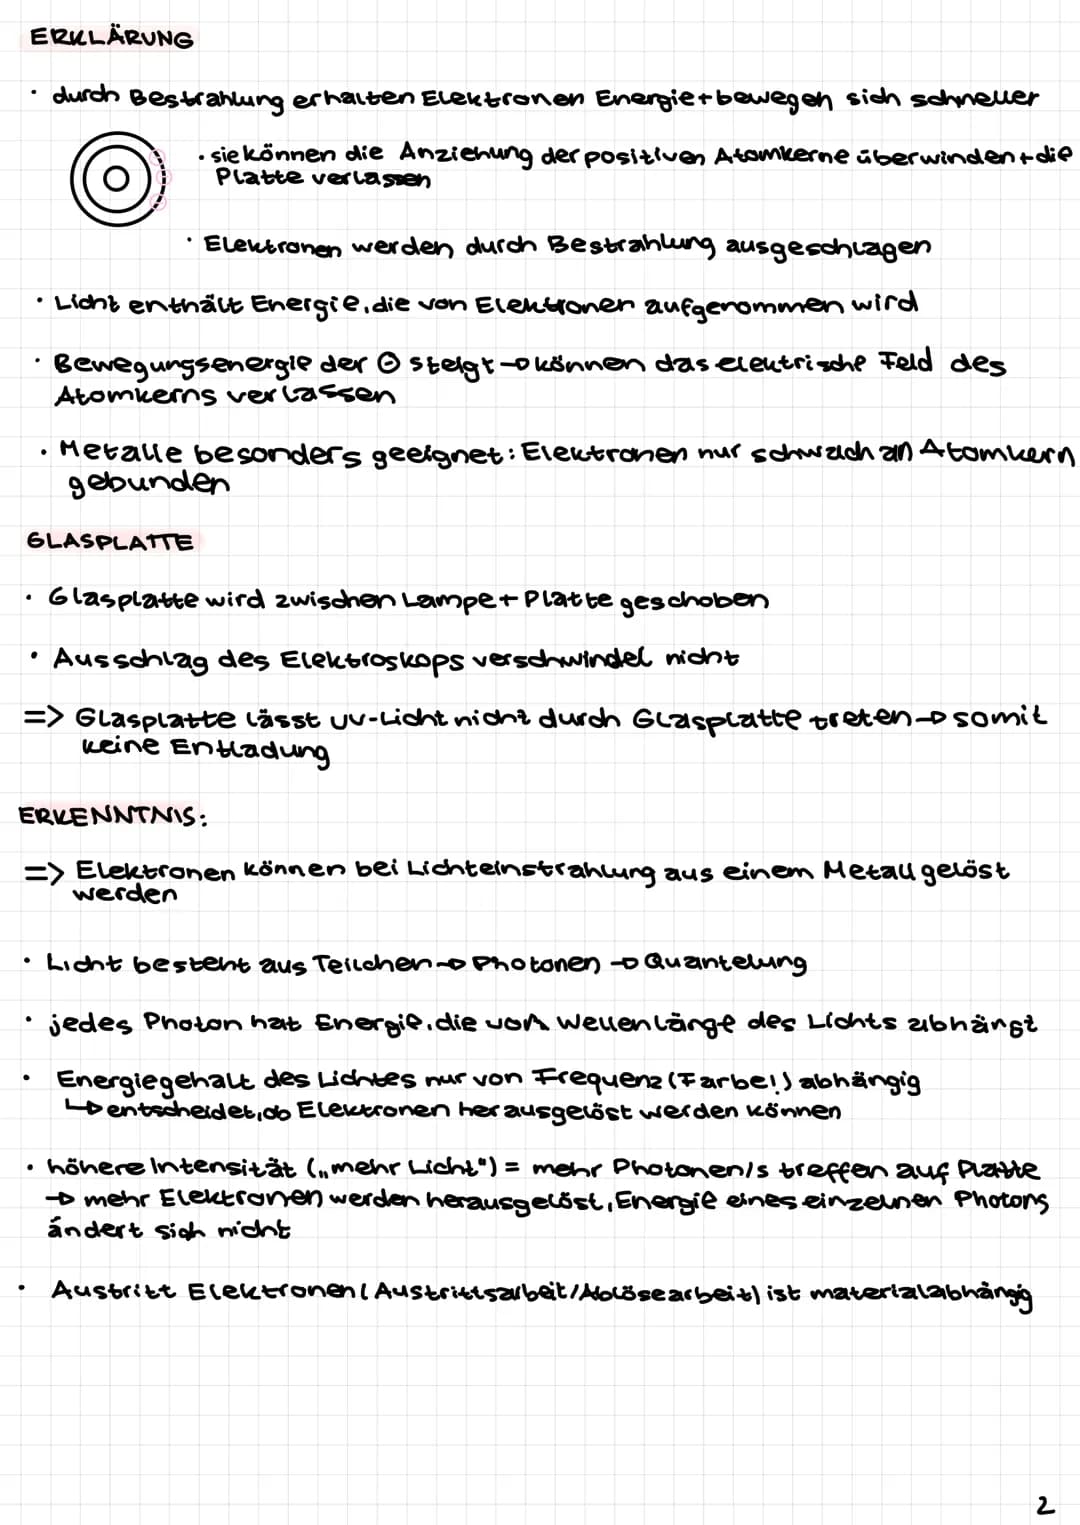 ERKLÄRUNG
· durch Bestrahlung erhalten Elektronen Energie + bewegen sich schneller
· sie können die Anziehung der positiven Atomkerne überwinden + die
Platte verlassen
· Elektronen werden durch Bestrahlung ausgeschlagen
· Licht enthält Energie, die von Elektronen aufgenommen wird
· Bewegungsenergie der ⊖ steigt → können das elektrische Feld des
Atomkerns verlassen
· Metalle besonders geeignet: Elektronen nur schwach an Atomkern
gebunden
GLASPLATTE
· Glasplatte wird zwischen Lampe + Platte geschoben
· Ausschlag des Elektroskops verschwindet nicht
=> Glasplatte lässt UV-Licht nicht durch Glasplatte treten → somit
keine Entladung
ERKENNTNIS:
=> Elektronen können bei Lichteinstrahlung aus einem Metall gelöst
werden
· Licht besteht aus Teilchen → Photonen → Quantelung
· jedes Photon hat Energie, die von Wellenlänge des Lichts abhängt
· Energiegehalt des Lichtes nur von Frequenz (Farbe!) abhängig
↳ entscheidet, ob Elektronen herausgelöst werden können
· höhere Intensität („mehr Licht") = mehr Photonen/s treffen auf Platte
→ mehr Elektronen werden herausgelöst, Energie eines einzelnen Photons
ändert sich nicht
· Austritt Elektronen (Austrittsarbeit/Ablösearbeit) ist materialabhängig
2